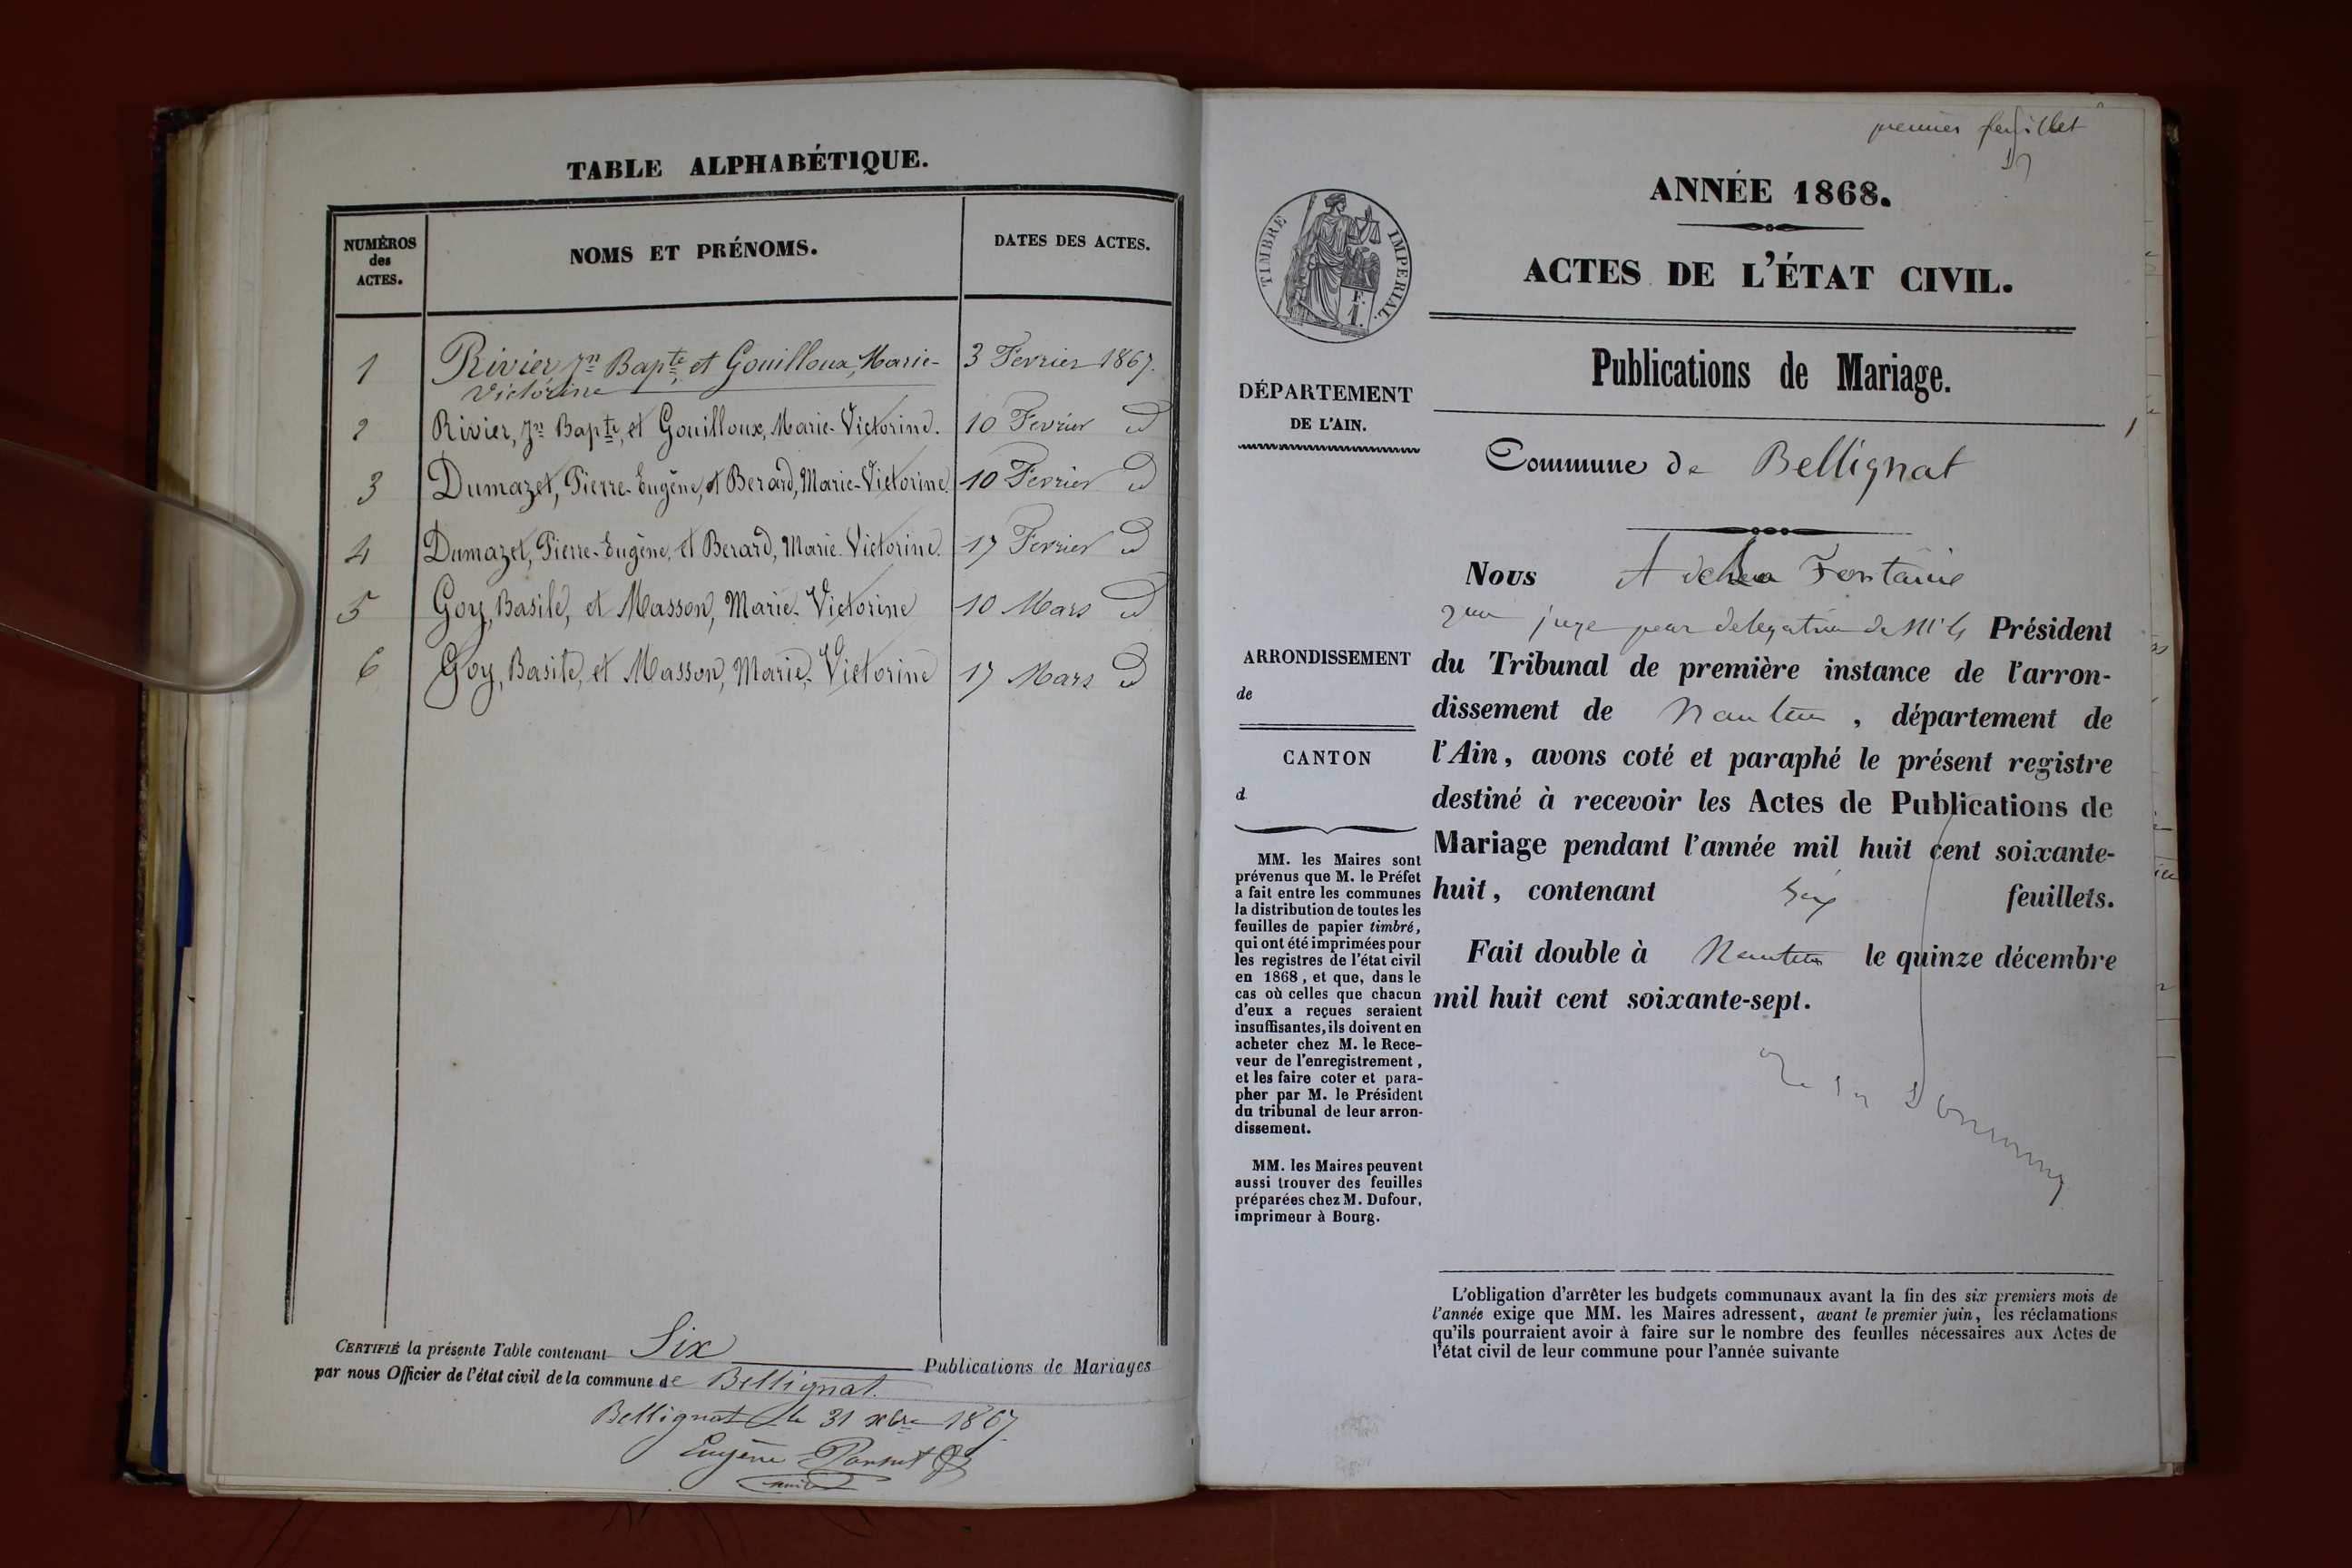 TABLE ALPHABÉTIQUE.
NUMÉROS
des
ACTES.
NOMS ET PRÉNOMS.
DATES DES ACTES.
1 Rivier, Jn Bapte, et Gouilloux, Marie- 3 Fevrier 1867.
Victorine
2 Rivier, Jn Bapte, et Gouilloux, Marie-Victorine. 10 Fevrier d
3 Dumazet, Pierre-Eugène, et Berard, Marie-Victorine. 10 Fevrier d
4 Dumazet, Pierre-Eugène, et Berard, Marie-Victorine. 17 Fevrier d
5 Goy, Basile, et Masson, Marie-Victorine 10 Mars d
6 Goy, Basile, et Masson, Marie-Victorine 17 Mars d
CERTIFIÉ la présente Table contenant Six Publications de Mariages
par nous Officier de l'état civil de la commune de Bellignat.
Bellignat le 31 xbre 1867.
Eugène
premier feuillet
ANNÉE 1868.
ACTES DE L'ÉTAT CIVIL.
TIMBRE IMPERIAL.
F.
1.
Publications de Mariage.
1
DÉPARTEMENT
DE L'AIN.
Commune de Bellignat
Nous Fontaine
juge par delegation de Président
du Tribunal de première instance de l'arron-
dissement de Nantua, département de
l'Ain, avons coté et paraphé le présent registre
destiné à recevoir les Actes de Publications de
Mariage pendant l'année mil huit cent soixante-
huit, contenant Six feuillets.
Fait double à Nantua le quinze décembre
mil huit cent soixante-sept.
ARRONDISSEMENT
de
CANTON
d
MM. les Maires sont
prévenus que M. le Préfet
a fait entre les communes
la distribution de toutes les
feuilles de papier timbré,
qui ont été imprimées pour
les registres de l'état civil
en 1868, et que, dans le
cas où celles que chacun
d'eux a reçues seraient
insuffisantes, ils doivent en
acheter chez M. le Rece-
veur de l'enregistrement,
et les faire coter et para-
pher par M. le Président
du tribunal de leur arron-
dissement.
MM. les Maires peuvent
aussi trouver des feuilles
préparées chez M. Dufour,
imprimeur à Bourg.
L'obligation d'arrêter les budgets communaux avant la fin des six premiers mois de
l'année exige que MM. les Maires adressent, avant le premier juin, les réclamations
qu'ils pourraient avoir à faire sur le nombre des feuilles nécessaires aux Actes de
l'état civil de leur commune pour l'année suivante